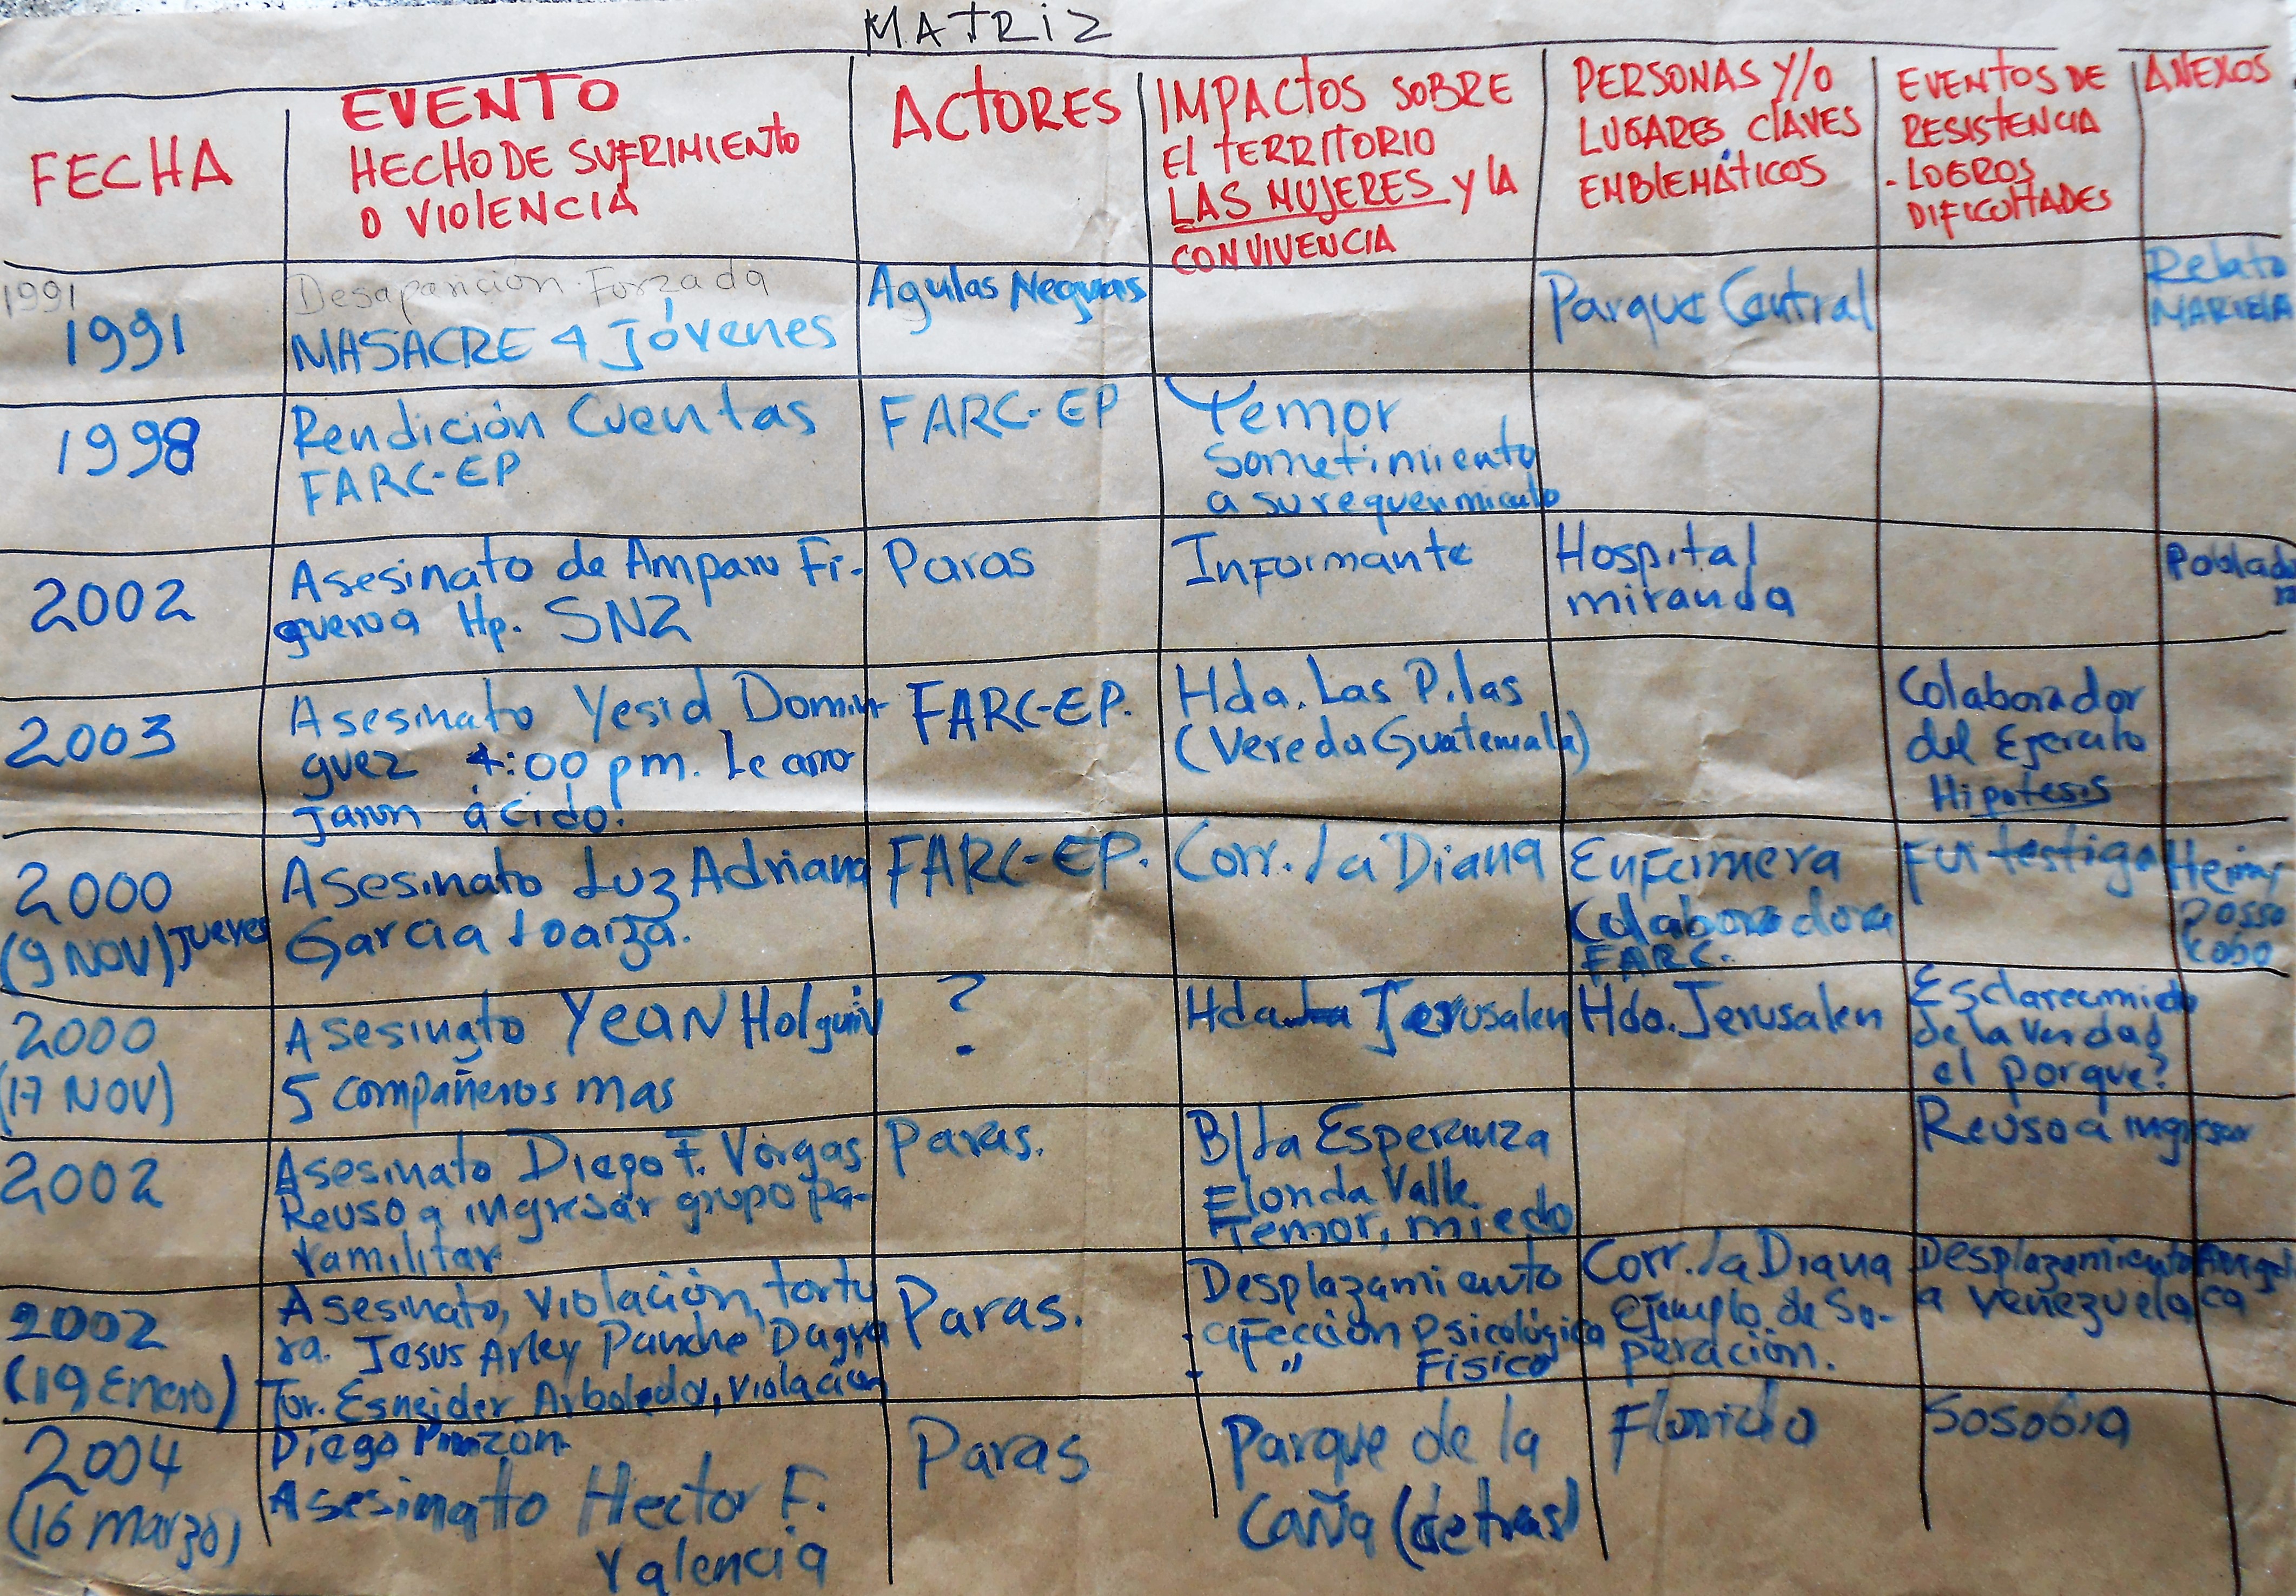 MATRIZ
FECHA
EVENTO
HECHO DE SUFRIMIENTO
O VIOLENCIA
ACTORES
IMPACTOS SOBRE
El TERRITORIO
LAS MUJERES y lA
CONVIVENCIA
PERSONAS Y/O
LUGARES ClAVES
EMBlEMÁTICOS
EVENTOS DE
RESISTENCIA
- LOGROS
DIFICULTADES
ANEXOS
1991
1991
Desaparición Forzada
MASACRE 4 Jóvenes
Agulas Negras
Parque Central
Relato
MARIELA
1998
Rendición Cuentas
FARC-EP
FARC-EP
Temor
Sometimiento
a su requerimiento
2002
Asesinato de Amparo Fi-
gueroa Hp. SNZ
Paras
Informante
Hospital
miranda
2003
Asesinato Yesid Domin
guez 4:00 pm. Le arro
jaron ácido.
FARC-EP.
Hda. Las Pilas
(Vereda Guatemala)
Colaborador
del Ejercito
Hipotesis
2000
(9 NOV) Jueves
Asesinato Luz Adriana
Garcia Loaiza.
FARC-EP.
Corr. La Diana
Enfermera
Colaboradora
FARC.
Fui testigo
Cobo
2000
(17 NOV)
Asesinato YEAN Holguin
5 compañeros mas
?
Hda. La Jerusalen
Hda. Jerusalen
Esclarecimiento
de la verdad
el porque?
2002
Asesinato Diego F. Vargas
Reuso a ingresar grupo pa-
ramilitar
Paras.
B/ La Esperanza
Florida Valle
Temor, miedo
Reuso a ingresar
2002
(19 Enero)
Asesinato, violación, tortu
ra. Jesus Arley Panche Dagua
Tor. Esneider Arboleda, violación
Paras.
Desplazamiento
- afección Psicológica
- " Fisico
Corr. La Diana
Ejemplo de Su-
peración.
Desplazamiento
a Venezuela
2004
(16 Marzo)
Diego Pinzón
Asesinato Hector F.
Valencia
Paras
Parque de la
Caña (detras)
Florida